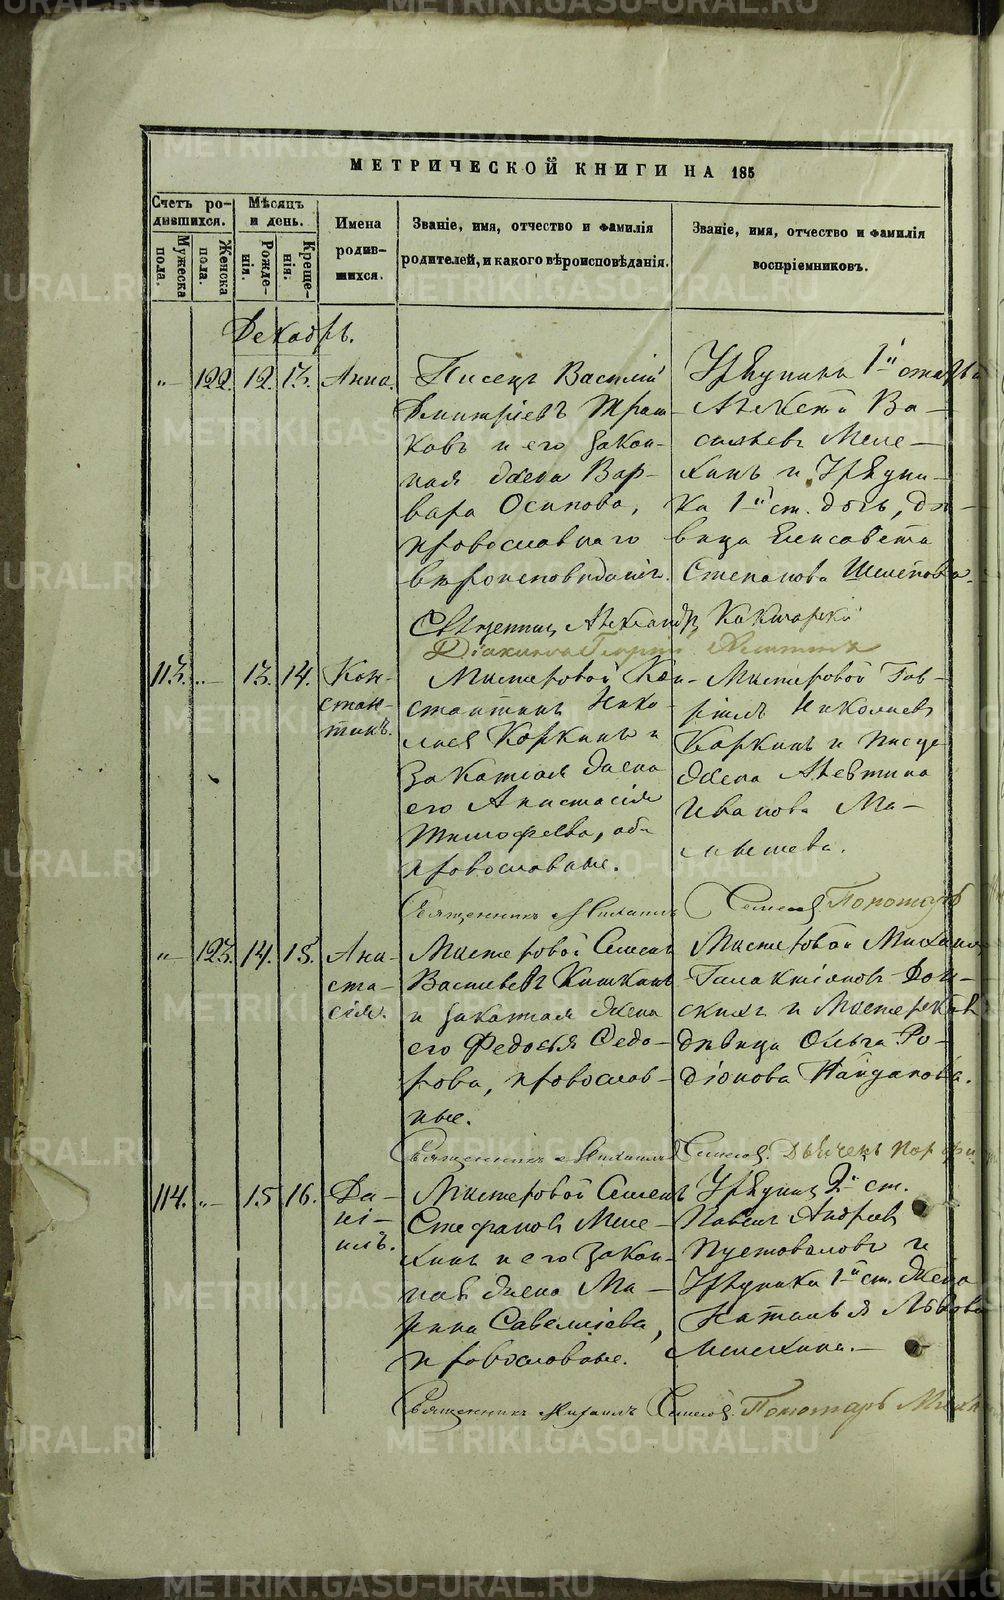 МЕТРИЧЕСКОЙ КНИГИ НА 185
Счетъ ро-
дившихся.
Мѣсяцъ
и день.
Мужеска
пола.
Женска
пола.
Рожде-
нія.
Креще-
нія.
Имена
родив-
шихся.
Званіе, имя, отчество и фамилія
родителей, и какого вѣроисповѣданія.
Званіе, имя, отчество и фамилія
воспріемниковъ.
Декабрь.
„ 122. 12. 13. Анна.
Писецъ Василій
Дмитріевъ
ковъ и его закон-
ная жена Вар-
вара Осипова,
православнаго
вѣроисповѣданія.
Урядникъ 1й статьи
Алексѣй Ва-
сильевъ Меле-
хинъ и Урядни-
ка 1й ст. дочь, дѣ-
вица Елисавета
Степанова
Священникъ Александръ
113. „ 13. 14. Кон-
стан-
тинъ.
Мастеровой Кон-
стантинъ Нико-
лаевъ Коркинъ и
законная жена
его Анастасія
Тимофеева, оба
православные.
Мастеровой Гав-
риилъ Николаевъ
Коркинъ и писца
жена Алевтина
Иванова Ма-
лышева.
Священникъ Михаилъ Пономарь
„ 123. 14. 15. Ана-
ста-
сія.
Мастеровой Семенъ
Васильевъ
и законная жена
его Федосья Федо-
рова, православ-
ные.
Мастеровой Михаилъ
Галактіоновъ Дон-
скихъ и Мастерская
дѣвица Ольга Ро-
діонова Найданова.
Священникъ Михаилъ
114. „ 15 16. Да-
ні-
илъ.
Мастеровой Семенъ
Стефановъ Меле-
хинъ и его закон-
ная жена Ма-
рина Савелліева,
православные.
Урядникъ 2й ст.
Павелъ Андреевъ
Пустоваловъ и
Урядника 1й ст. жена
Наталья Львова
Мелехина.
Священникъ Михаилъ Пономарь
METRIKI.GASO-URAL.RU